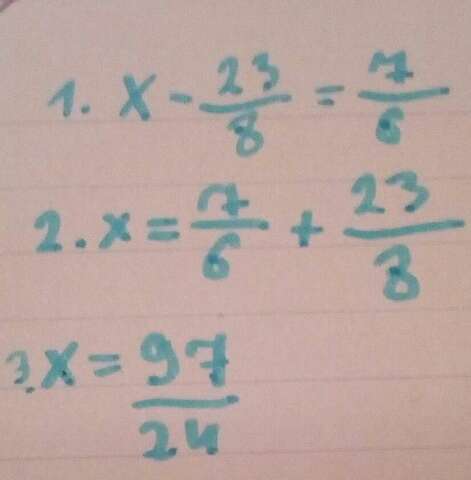 1. x - 23/8 = 7/6
2. x = 7/6 + 23/8
3. x = 97/24